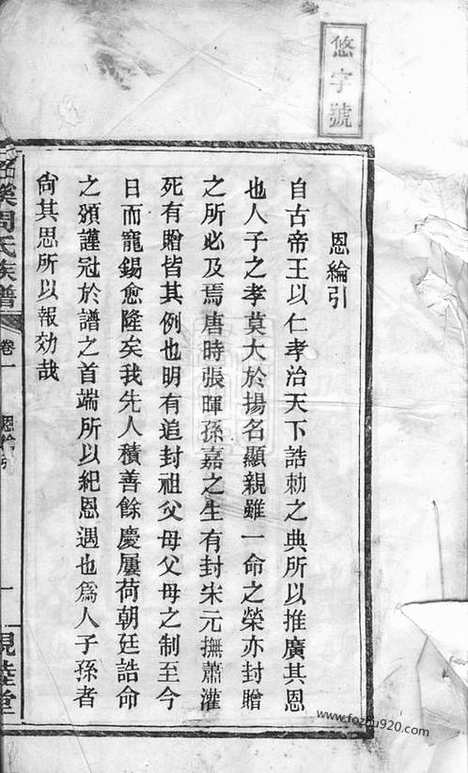 悠字號
恩綸引
自古帝王以仁孝治天下誥勅之典所以推廣其恩
也人子之孝莫大於揚名顯親雖一命之榮亦封贈
之所必及焉唐時張暉孫嘉之生有封宋元撫蕭灌
死有贈皆其例也明有追封祖父母父母之制至今
日而寵錫愈隆矣我先人積善餘慶屢荷朝廷誥命
之頒謹冠於譜之首端所以紀恩遇也為人子孫者
尙其思所以報効哉
溪周氏族譜
卷一
恩綸引
一
www.fozhu920.com